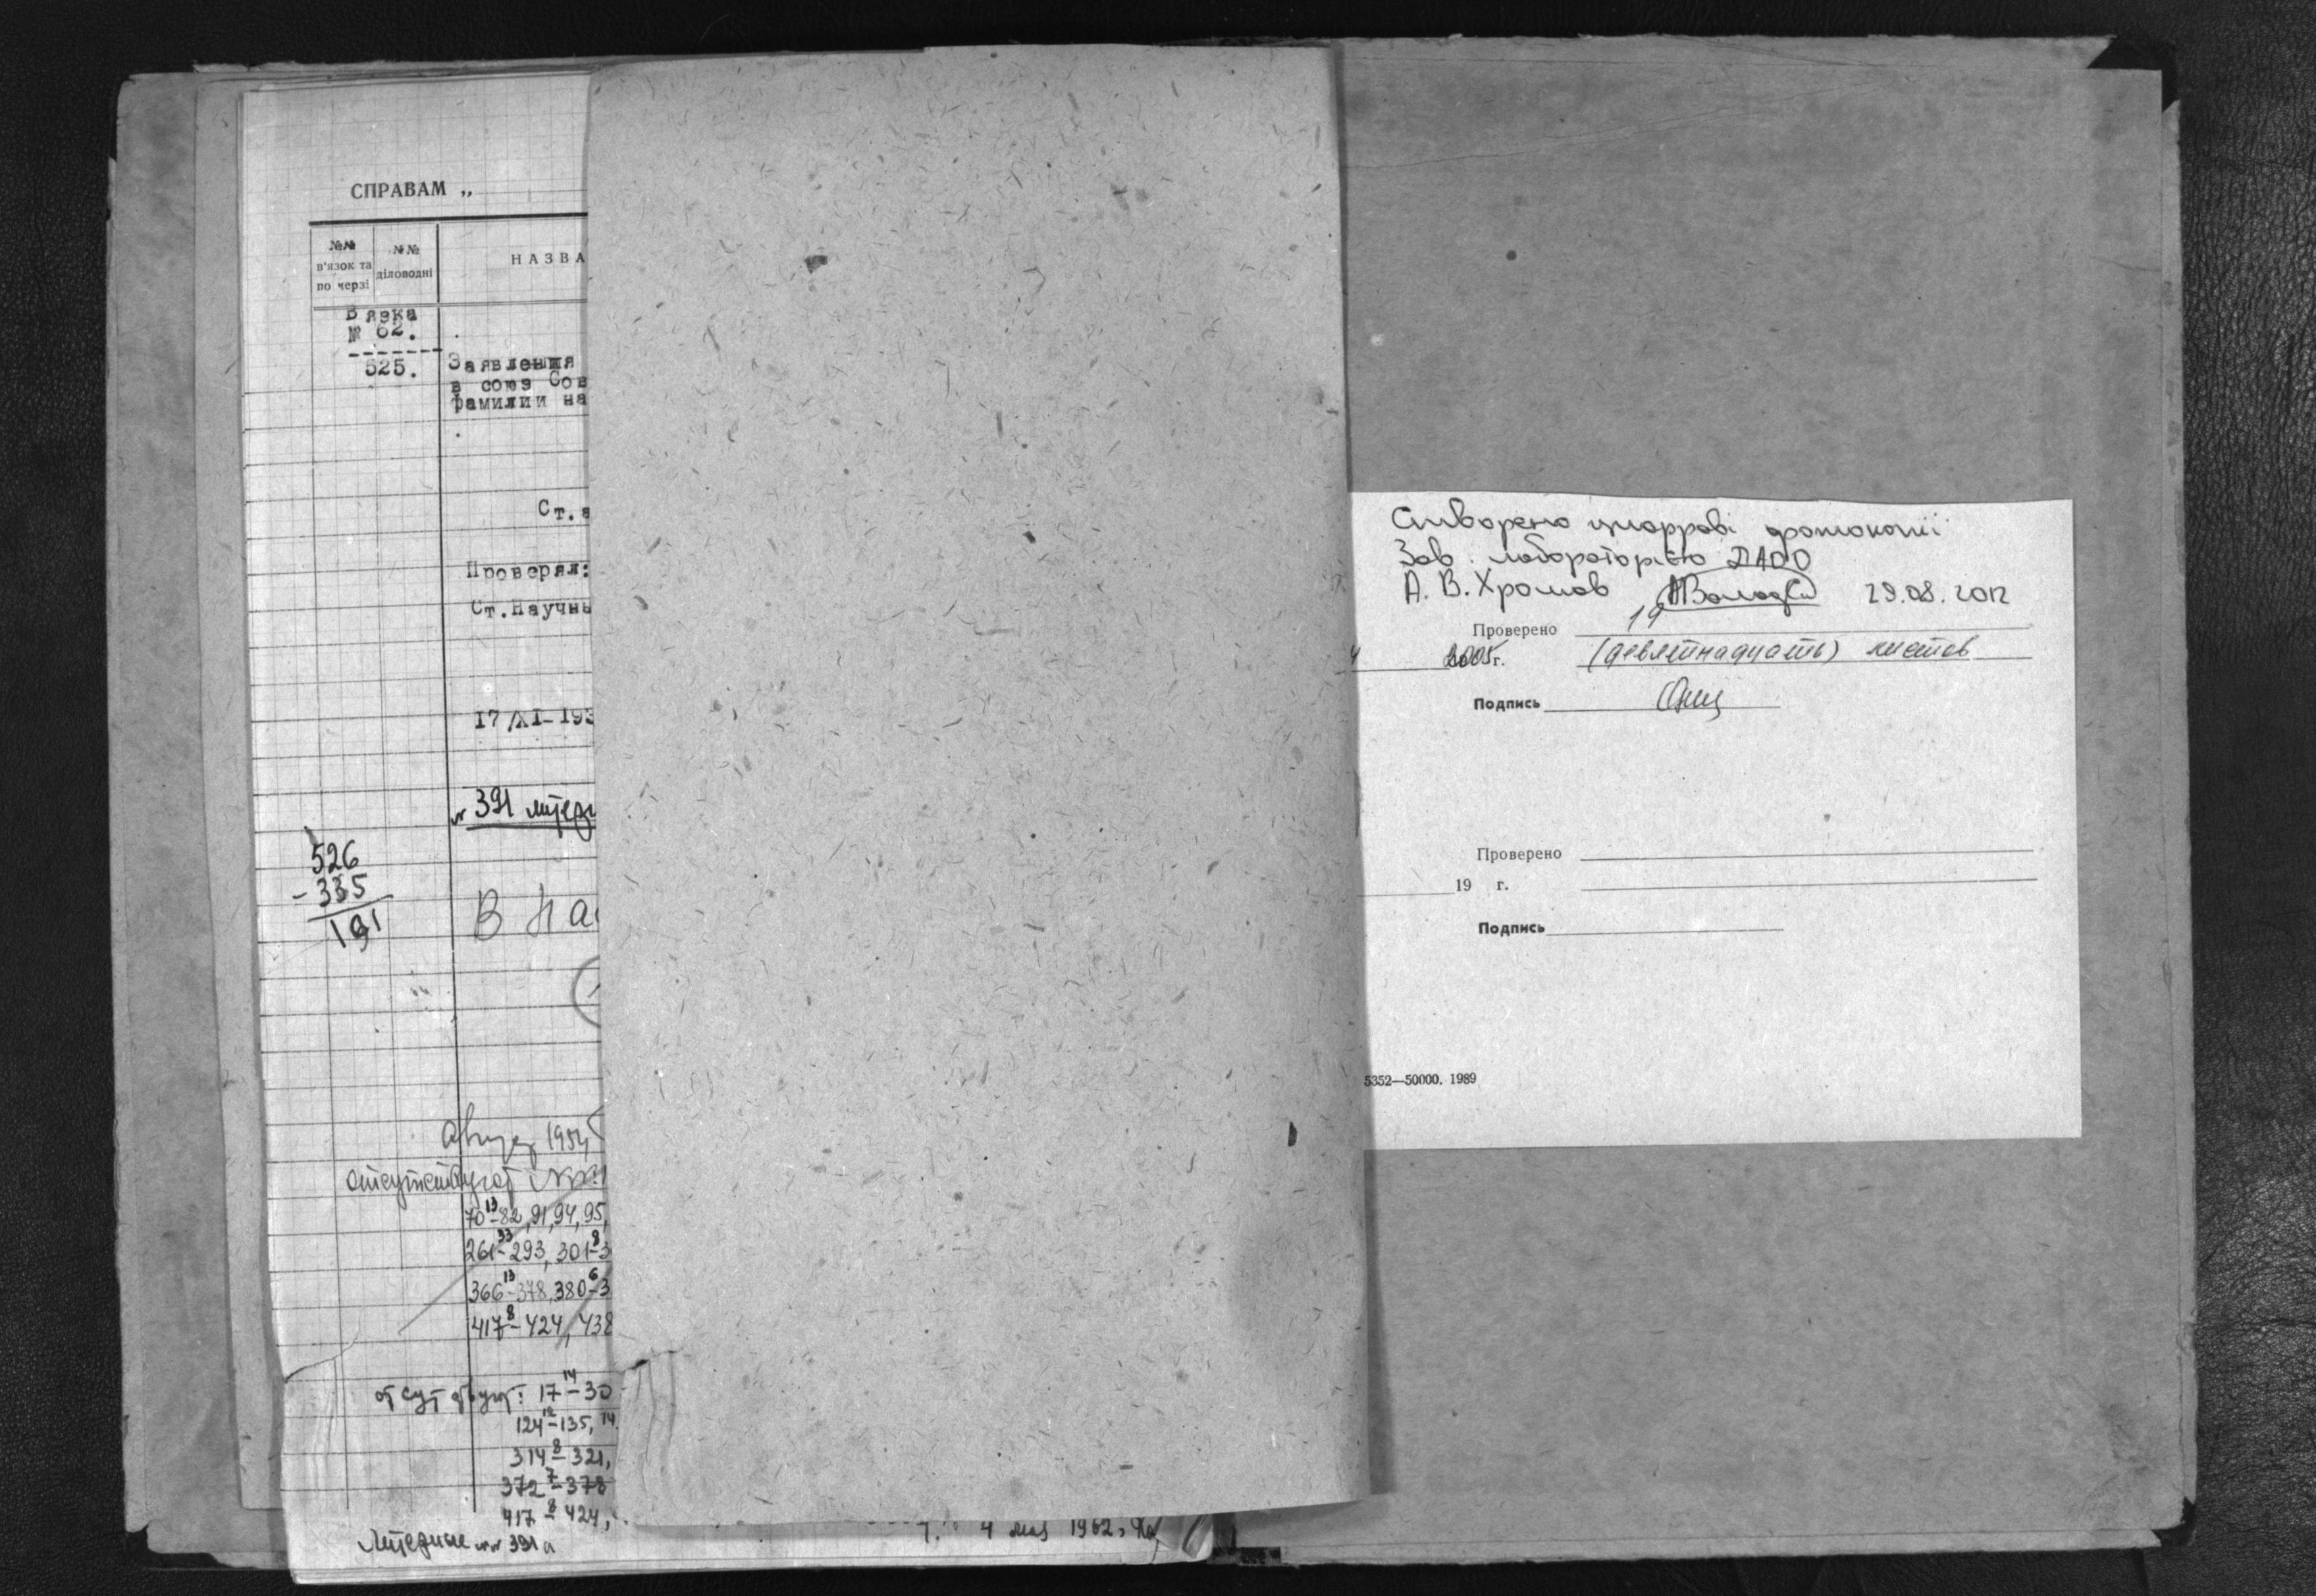 СПРАВАМ „
№№
в'язок та
по черзі
№№
діловодні
НАЗВА
Вязка
№ 62.
525.
Заявления
в союз Сов
фамилии на
Ст.
Проверял:
Ст.Научны
17/XI-193
391
526
- 335
191
В на
1954
отсутствуют №№
70-82, 91, 94, 95,
13
261-293, 301-3
33 8
366-378, 380-3
13 6
417-424, 438
8
отсутствуют: 17-30
14
124-135, 14
12
314-321,
8
372-378
7
417-424,
8
Литерные №№ 391а
4 мая 1962г.
Створено цифрові фотокопії
Зав. лабораторією ДАОО
А. В. Хромов 29.08.2012
19
Проверено
4 2005г. (девятнадцать) листов
Подпись
Проверено
19 г.
Подпись
5352—50000. 1989